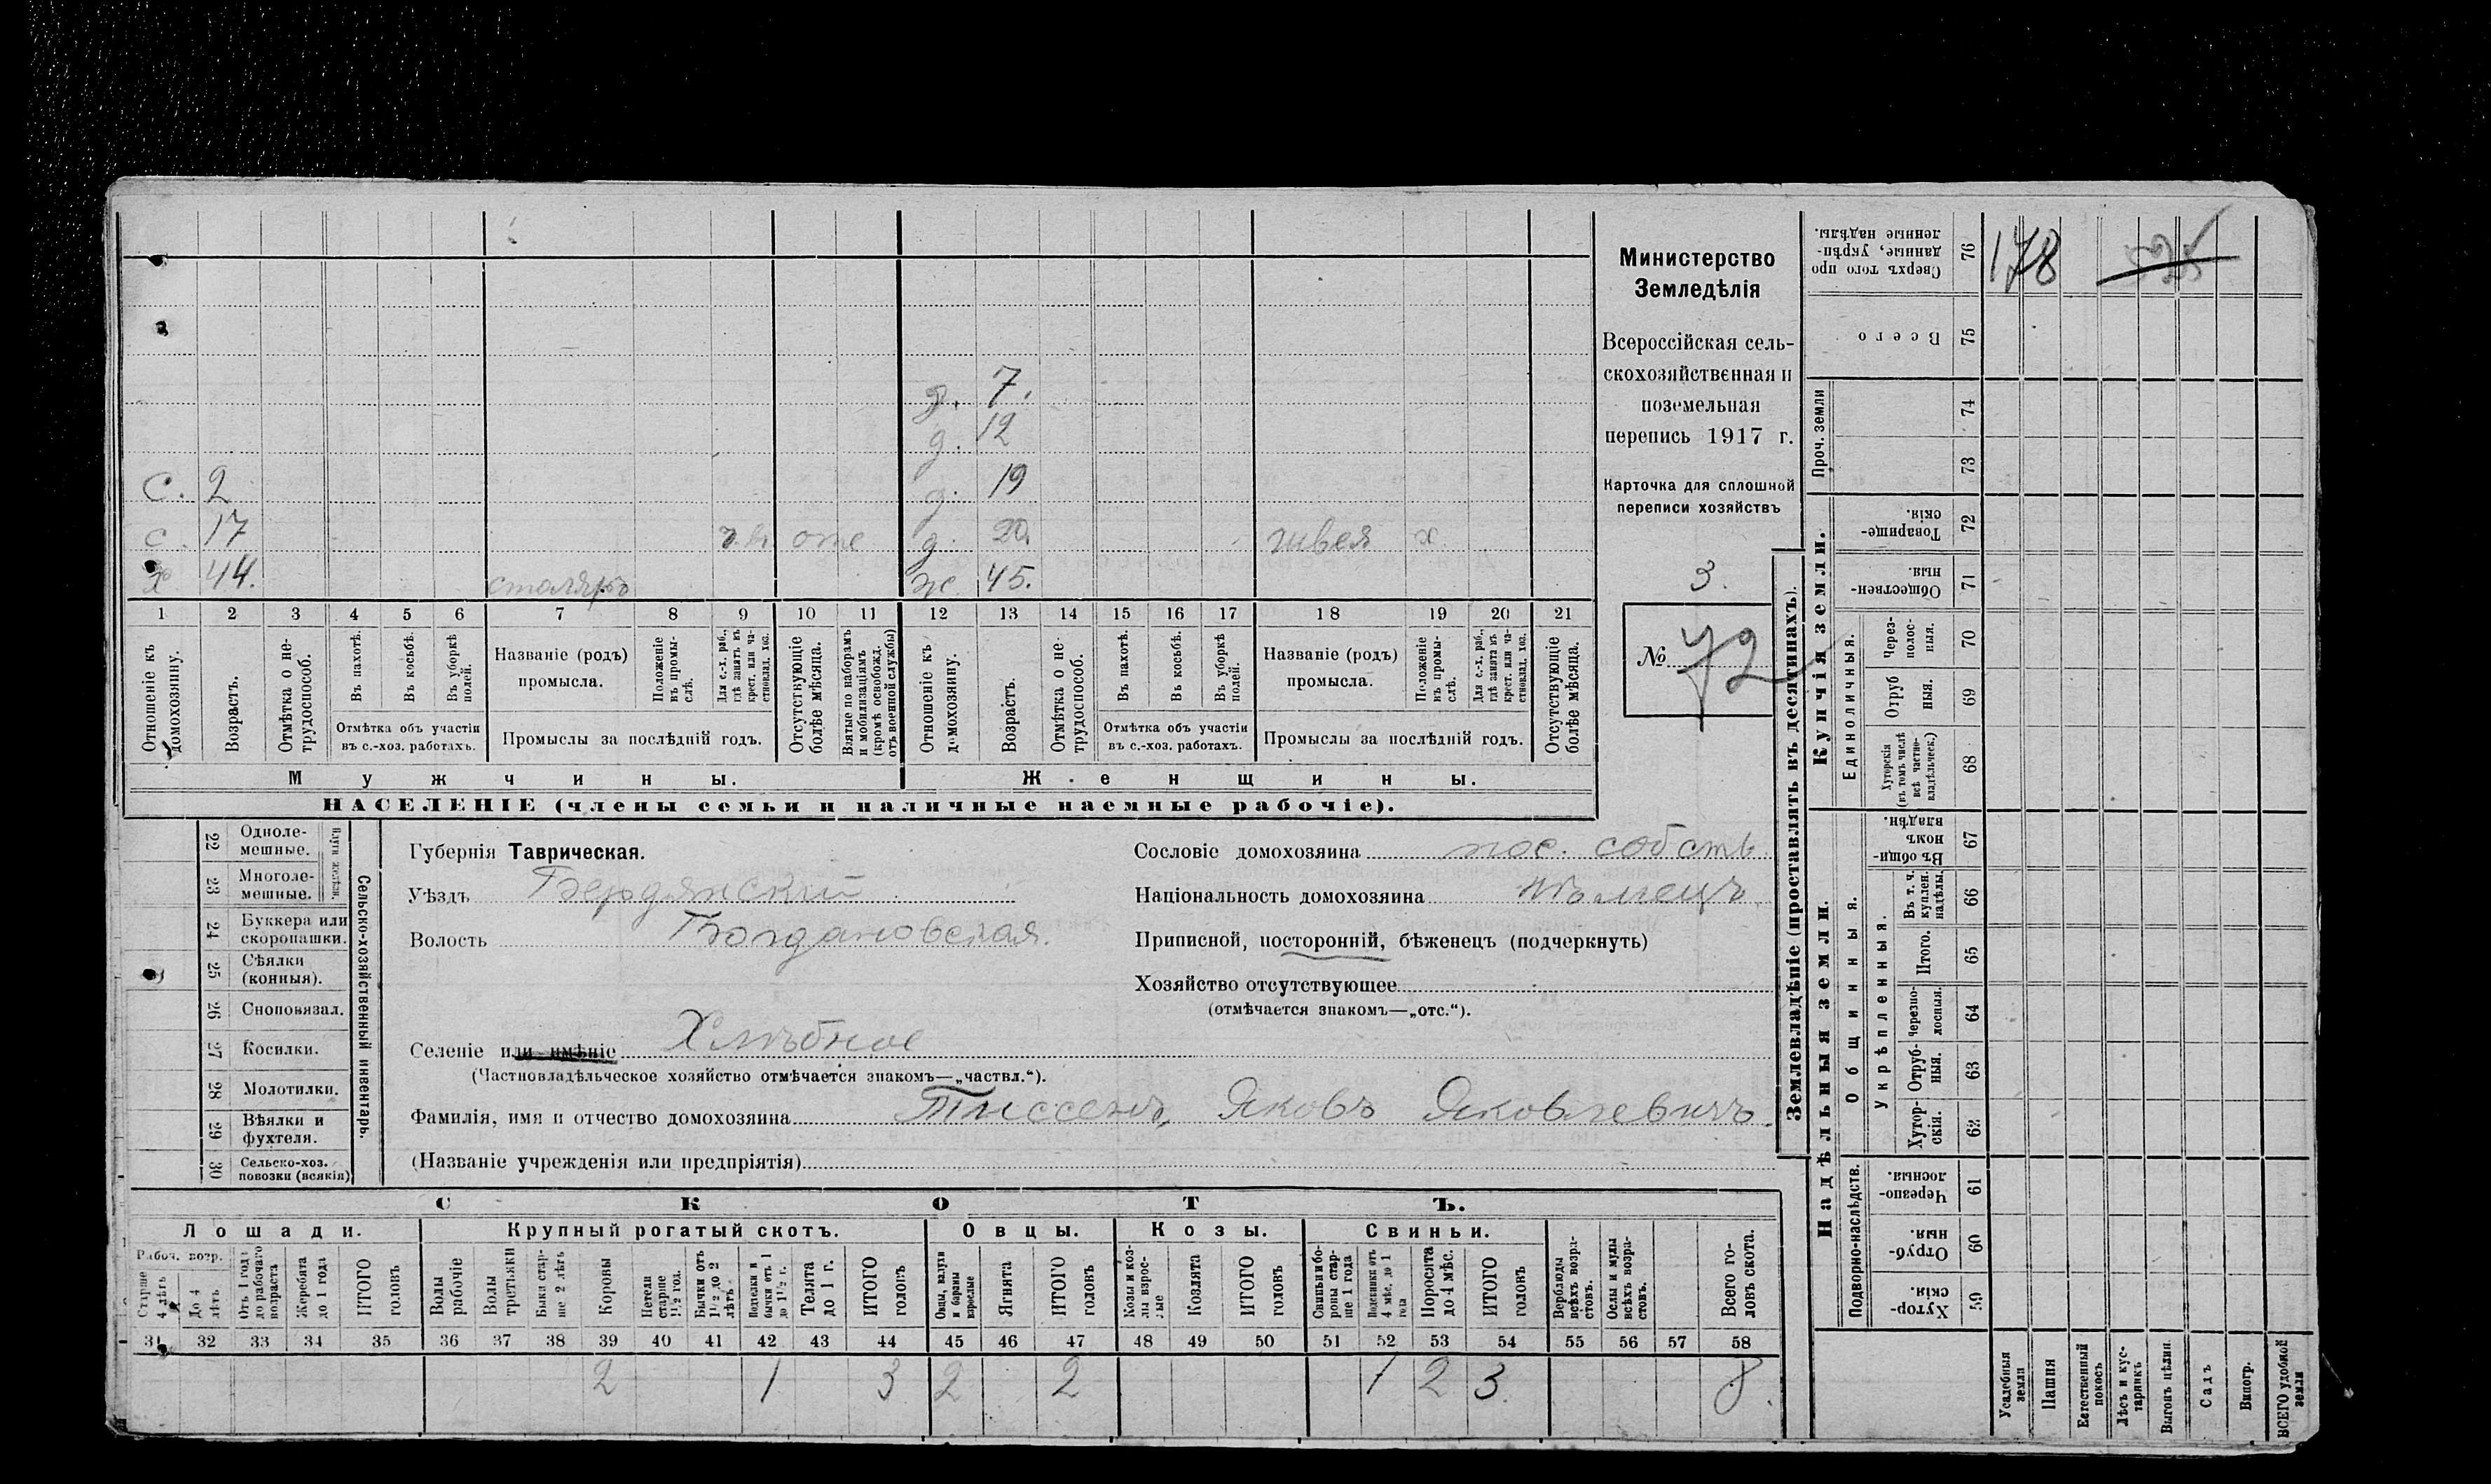 178
д. 7.
д. 12
С. 2 д. 19
с. 17 отс д. 20. швея х
х 44. столяръ ж. 45.
1 2 3 4 5 6 7 8 9 10 11 12 13 14 15 16 17 18 19 20 21
Отношеніе къ домохозяину.
Возрастъ.
Отмѣтка о не-
трудоспособ.
Въ пахотѣ.
Въ косьбѣ.
Въ уборкѣ полей.
Отмѣтка объ участіи
въ с.-хоз. работахъ.
Названіе (родъ)
промысла.
Положеніе въ промы-
слѣ.
Для с.-х. раб.,
гдѣ занятъ въ
крест. или ча-
стновлад. хоз.
Промыслы за послѣдній годъ.
Отсутствующіе
болѣе мѣсяца.
Взятые по наборамъ
и мобилизаціямъ
(кромѣ освобожд.
отъ военной службы)
Отношеніе къ
домохозяину.
Возрастъ.
Отмѣтка о не-
трудоспособ.
Въ пахотѣ.
Въ косьбѣ.
Въ уборкѣ полей.
Отмѣтка объ участіи
въ с.-хоз. работахъ.
Названіе (родъ)
промысла.
Положеніе
въ промы-
слѣ.
Для с.-х. раб.,
гдѣ занята въ
крест. или ча-
стновлад. хоз.
Промыслы за послѣдній годъ.
Отсутствующіе
болѣе мѣсяца.
Мужчины.
Женщины.
НАСЕЛЕНІЕ (члены семьи и наличные наемные рабочіе).
Министерство
Земледѣлія
Всероссійская сель-
скохозяйственная и
поземельная
перепись 1917 г.
Карточка для сплошной
переписи хозяйствъ
3.
№ 72
22 Одноле-
мешные.
23 Многоле-
мешные.
24 Буккера или
скоропашки.
25 Сѣялки
(конныя).
26 Сноповязал.
27 Косилки.
28 Молотилки.
29 Вѣялки и
фухтеля.
30 Сельско-хоз.
повозки (всякія)
Сельско-хозяйственный инвентарь.
Губернія Таврическая.
Уѣздъ Бердянскій
Волость Богдановская.
Селеніе или имѣніе Хлѣбное
(Частновладѣльческое хозяйство отмѣчается знакомъ—„частвл.“).
Фамилія, имя и отчество домохозяина Тиссенъ, Яковъ Яковлевичъ.
(Названіе учрежденія или предпріятія)
Сословіе домохозяина пос. собств.
Національность домохозяина Нѣмецъ.
Приписной, посторонній, бѣженецъ (подчеркнуть)
Хозяйство отсутствующее
(отмѣчается знакомъ—„отс.“).
СКОТЪ.
Лошади. Крупный рогатый скотъ. Овцы. Козы. Свиньи.
Рабоч. возр.
Старше
4 лѣтъ
До 4
лѣтъ
Отъ 1 года
до рабочаго
возраста
Жеребята
до 1 года
ИТОГО
головъ
Волы
рабочіе
Волы
третьяки
Быки стар-
ше 2 лѣтъ
Коровы
Нетели
старше
1½ год.
Бычки отъ
1½ до 2
лѣтъ
Подтелки и
бычки отъ 1
до 1½ г.
Телята
до 1 г.
ИТОГО
головъ
Овцы, валухи
и бараны
взрослые
Ягнята
ИТОГО
головъ
Козы и коз-
лы взрос-
лые
Козлята
ИТОГО
головъ
Свиньи бо-
ровы стар-
ше 1 года
Подсвинки отъ
4 мѣс. до 1
года
Поросята
до 4 мѣс.
ИТОГО
головъ
Верблюды
всѣхъ возра-
стовъ.
Ослы и мулы
всѣхъ возра-
стовъ.
Всего го-
ловъ скота.
31 32 33 34 35 36 37 38 39 40 41 42 43 44 45 46 47 48 49 50 51 52 53 54 55 56 57 58
2 1 3 2 2 1 2 3 8.
Землевладѣніе (проставлять въ десятинахъ).
Купчія земли.
Надѣльныя земли.
Сверхъ того про
данные, укрѣп-
ленные надѣлы.
76
Всего
75
Проч. земли
74
73
Товарище-
скія.
72
Обществен-
ныя.
71
Единоличныя.
Через-
полос-
ныя.
70
Отруб
ныя.
69
Хуторскія
(въ томъ числѣ
всѣ частно-
владѣльческ.)
68
Общинныя.
Въ общи-
номъ
владѣн.
67
Укрѣпленныя.
Въ т. ч.
куплен.
надѣлы.
66
Итого.
65
Черезпо-
лосныя.
64
Отруб-
ныя.
63
Хутор-
скія.
62
Подворно-наслѣдств.
Черезпо-
лосныя
61
Отруб-
ныя.
60
Хутор-
скія.
59
Усадебныя
земли
Пашня
Естественный
покосъ
Лѣсъ и кус-
тарникъ
Выгонъ цѣлин.
Садъ
Виногр.
ВСЕГО удобной
земли